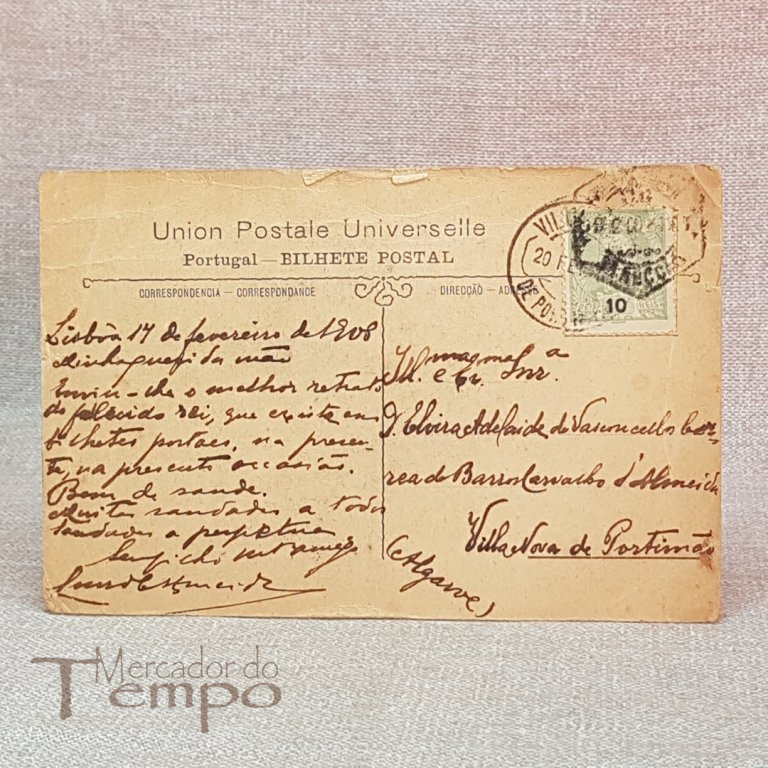 Union Postale Universelle
Portugal — BILHETE POSTAL
CORRESPONDENCIA — CORRESPONDANCE
DIRECÇÃO — ADRESSE
10
20 FE
Lisbôa 17 de fevereiro de 1908
Minha querida mãe
Envio-lhe o melhor retrato
do falecido rei, que existe em
bilhetes postaes, na presen-
te, na presente occasião.
Bom de saude.
Muitas saudades a todos
saudades a perpetua
Seu filho mto amigo
Ill.ma e Ex.ma Snr.a
D. Elvira Adelaide de Vasconcellos Cor-
rea de Barros Carvalho d'Almeida
Villa Nova de Portimão
(Algarve)
Mercador do
Tempo